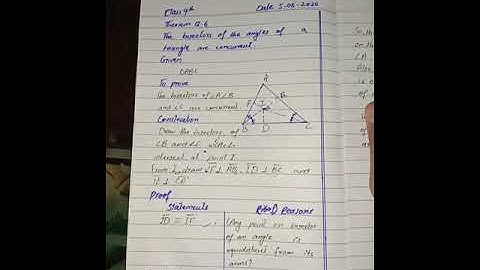 Class 9th Date 5-06-2020
Theorem 12.6
The bisectors of the angles of a
triangle are concurrent.
Given
△ABC
To prove
The bisectors of ∠A ∠B
and ∠C are concurrent
Construction
Draw the bisectors of
∠B and ∠C which
intersect at point I.
From I, draw IF ⊥ AB, ID ⊥ BC and
IE ⊥ CA
Proof
Statements Reasons
ID ≅ IF (Any point on bisector
of an angle is
equidistant from its
arms)
A
F
E
I
B
D
C
So th
on th
∠A
Also
is o